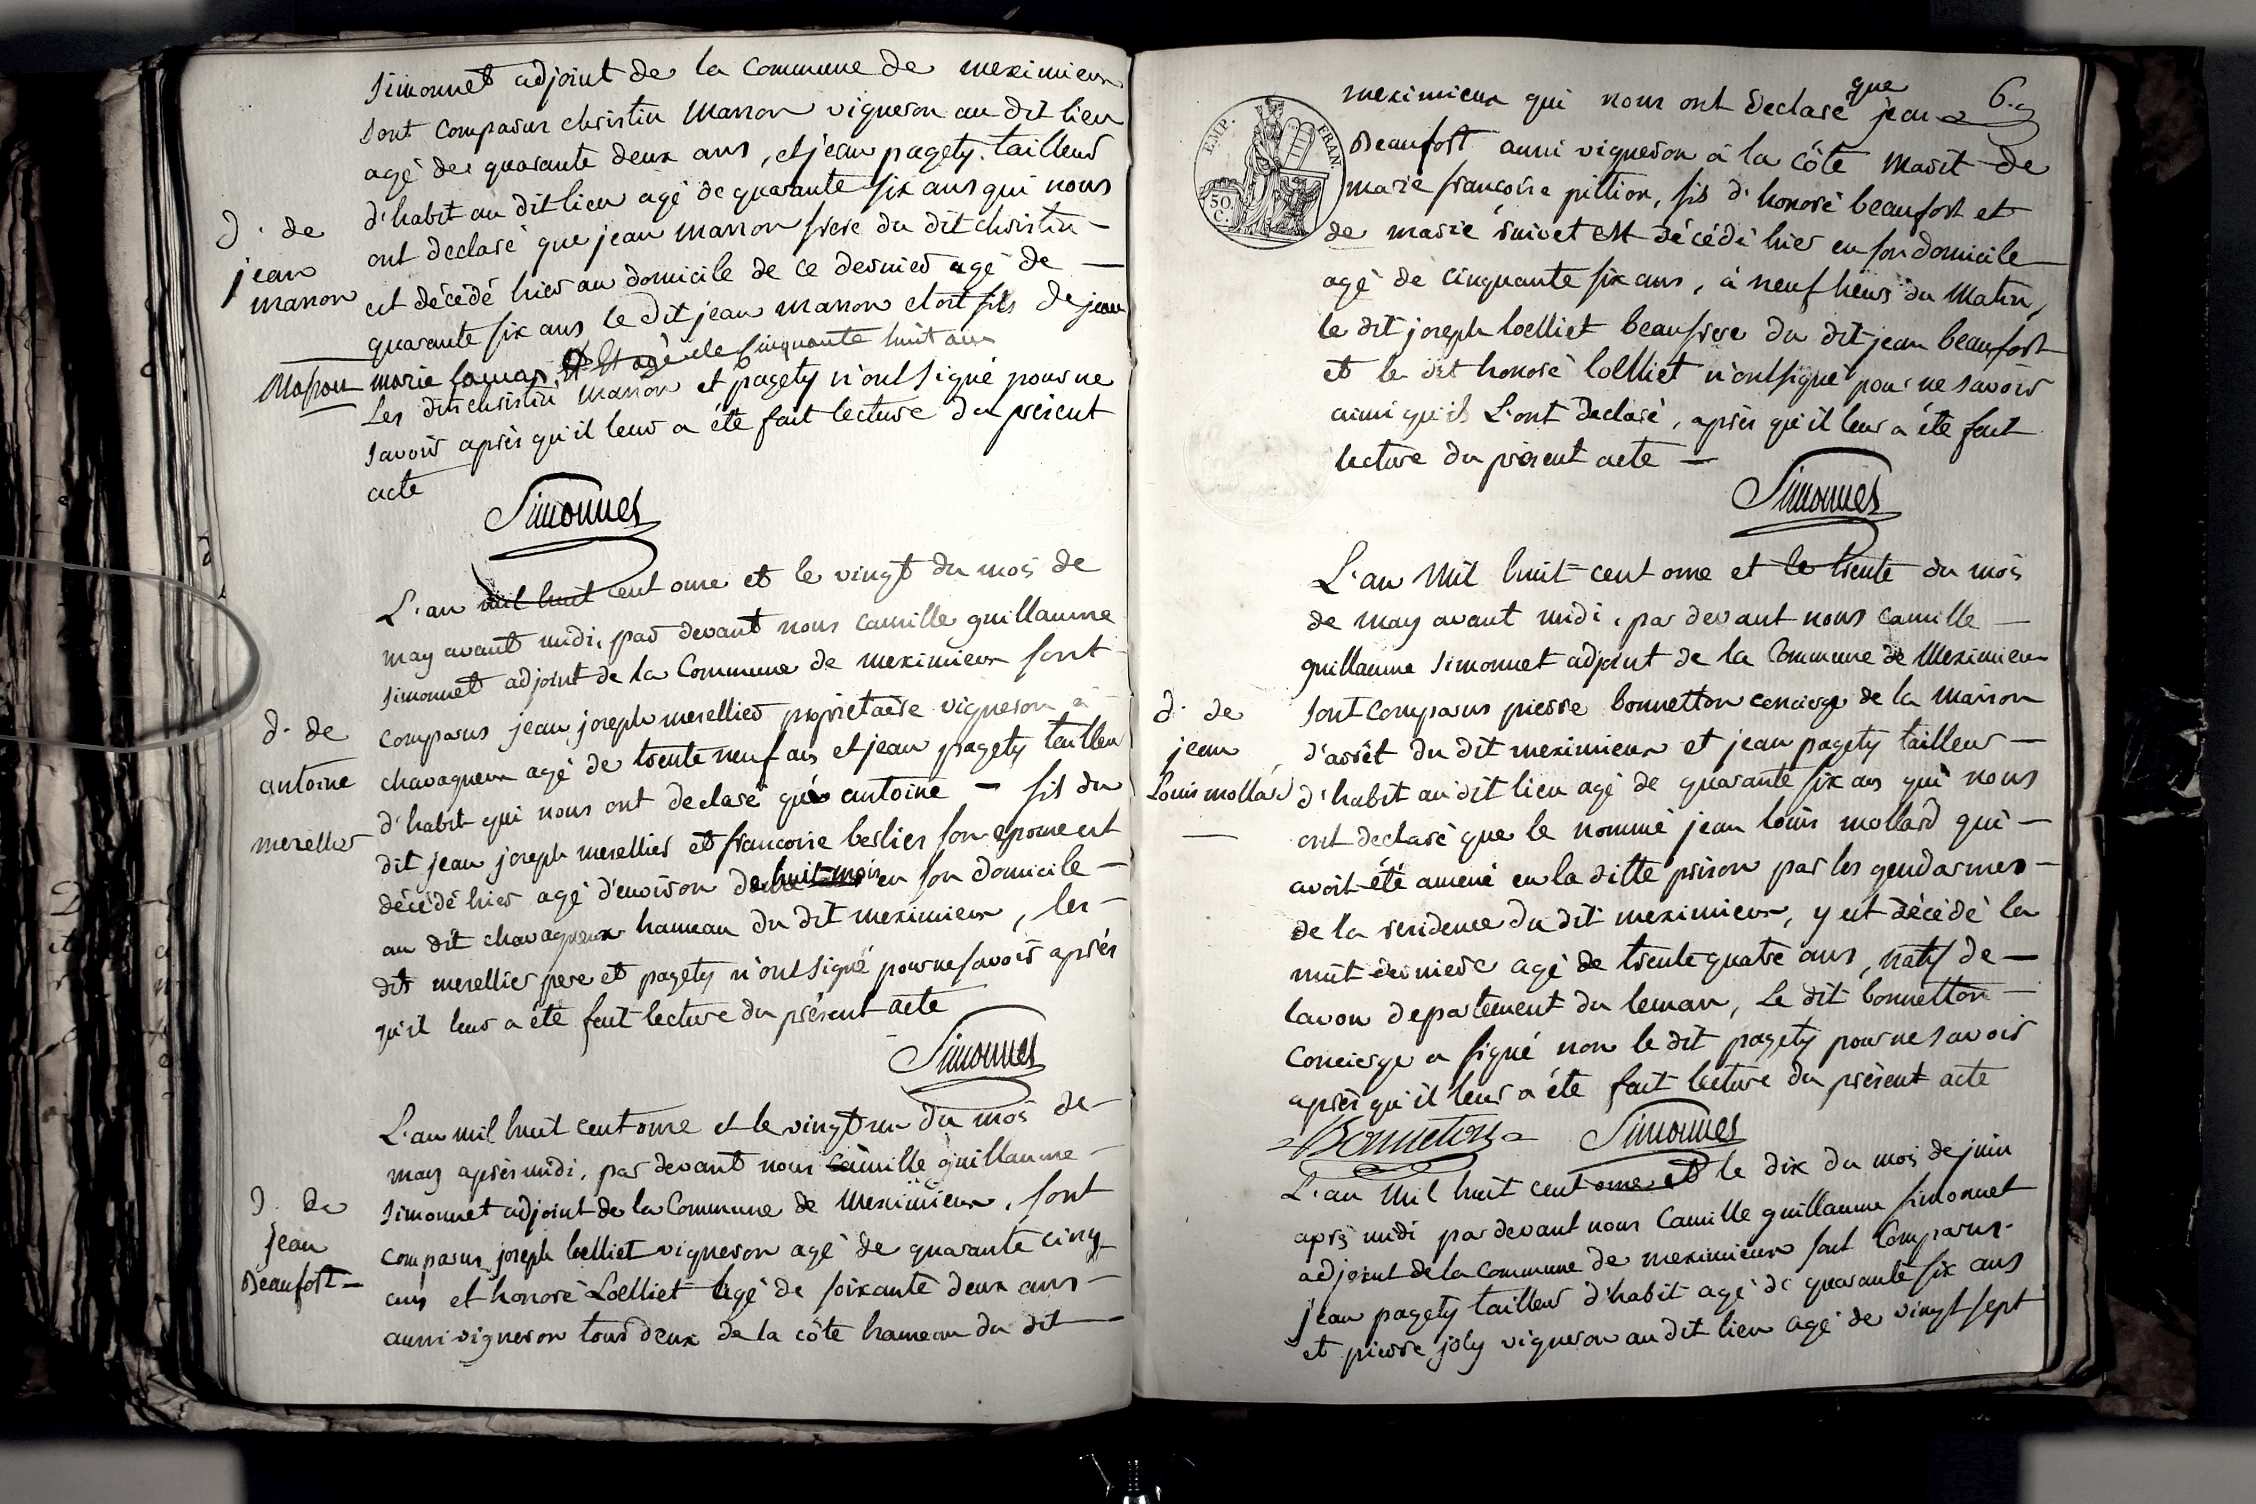 simonnet adjoint de la commune de meximieux
sont comparus christin manron vigneron au dit lieu
agé de quarante deux ans, et jean pagety tailleur
d'habit au dit lieu agé de quarante six ans qui nous
ont declaré que jean manron frere du dit christin
est décédé hier au domicile de ce dernier agé de
quarante six ans le dit jean manron etoit fils de jean
marie et agé de cinquante huit ans
Les dits christin manron et pagety n'ont signé pour ne
savoir après qu'il leur a été fait lecture du présent
acte
d. de
jean
manron
Simonnet
L'an mil huit cent onze et le vingt du mois de
may avant midi, par devant nous camille guillaume
simonnet adjoint de la commune de meximieux sont
comparus jean joseph merellier proprietaire vigneron à
chavagneux agé de trente neuf ans et jean pagety tailleur
d'habit qui nous ont declaré que antoine fils du
dit jean joseph merellier et francoise berlier son epouse est
décédé hier agé d'environ huit mois en son domicile
au dit chavagneux hameau du dit meximieux, les
dits merellier pere et pagety n'ont signé pour ne savoir après
qu'il leur a été fait lecture du présent acte
d. de
antoine
merellier
Simonnet
L'an mil huit cent onze et le vingt un du mois de
may après midi, par devant nous camille guillaume
simonnet adjoint de la commune de Meximieux, sont
comparus joseph loelliet vigneron agé de quarante cinq
ans et honoré Loelliet agé de soixante deux ans
aussi vigneron tous deux de la côte hameau du dit
d. de
jean
Beaufort
6.
meximieux qui nous ont declaré que jean
Beaufort aussi vigneron à la côte marit de
marie francoise pittion, fils d'honoré beaufort et
de marie est décédé hier en son domicile
agé de cinquante six ans, à neuf heurs du matin,
le dit joseph loelliet beaufrere du dit jean beaufort
et le dit honoré loelliet n'ont signé pour ne savoir
ainsi qu'ils l'ont declaré, après qu'il leur a été fait
lecture du présent acte
EMP. FRAN.
50 C.
Simonnet
L'an mil huit cent onze et le trente du mois
de may avant midi, par devant nous camille
guillaume simonnet adjoint de la Commune de Meximieux
sont comparus pierre bonnetton concierge de la maison
d'arrêt du dit meximieux et jean pagety tailleur
d'habit au dit lieu agé de quarante six ans qui nous
ont declaré que le nommé jean louis mollard qui
avoit été amené en la ditte prison par les gendarmes
de la residence du dit meximieux, y est décédé la
nuit derniere agé de trente quatre ans, natif de
lavon departement du leman, le dit bonnetton
concierge a signé non le dit pagety pour ne savoir
après qu'il leur a été fait lecture du présent acte
d. de
jean
Louis mollard
Bonneton Simonnet
L'an mil huit cent onze et le dix du mois de juin
après midi par devant nous Camille guillaume simonnet
adjoint de la commune de meximieux sont comparus
jean pagety tailleur d'habit agé de quarante six ans
et pierre joly vigneron au dit lieu agé de vingt sept